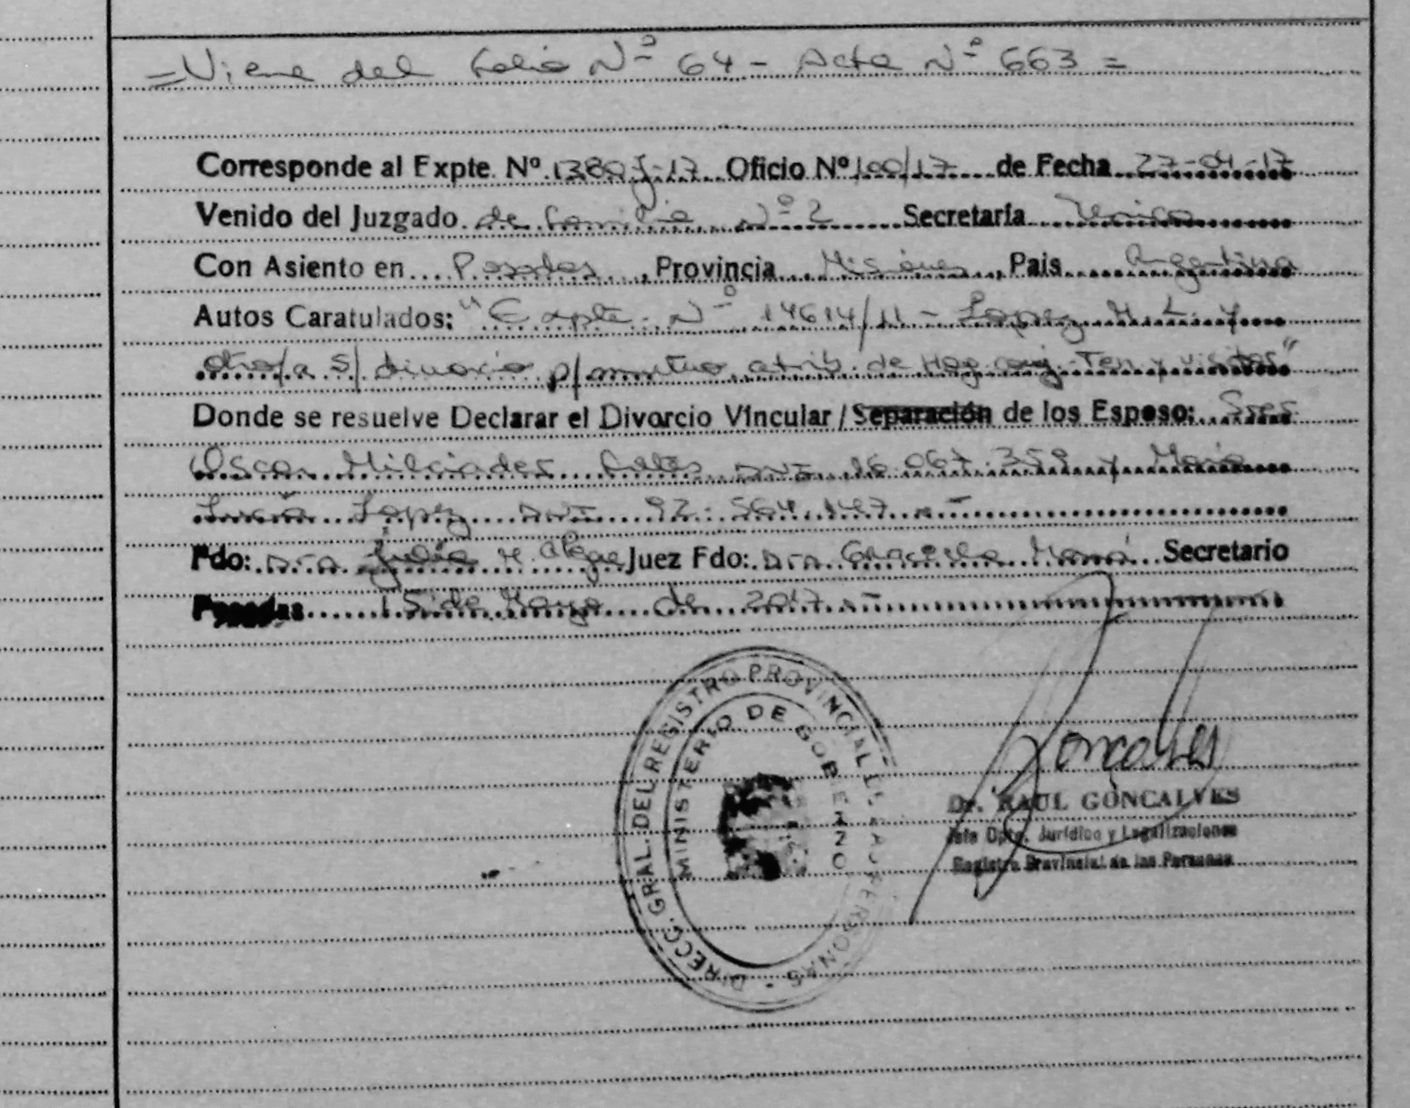 =Viene del folio Nº 64 - Acta Nº 663=
Corresponde al Expte. Nº 1380-J-17 Oficio Nº 100/17 de Fecha 27-04-17
Venido del Juzgado de Familia Nº 2 Secretaría Unica
Con Asiento en Posadas, Provincia Misiones, Pais Argentina
Autos Caratulados: "Expte. Nº 14614/11 - Lopez M. L. y
otro/a s/ divorcio p/ mutuo, atrib. de Hog. conyg - Ten y visitas"
Donde se resuelve Declarar el Divorcio Vincular / Separación de los Esposo: Sres
Oscar Milciades DNI 16.067.359 y María
Lucía Lopez DNI 92.564.147.-
Fdo: Dra. Julia H. Alegre Juez Fdo: Dra. Graciela Secretario
Posadas 15 de Mayo de 2017.-
DIRECC. GRAL. DEL REGISTRO PROVINCIAL DE LAS PERSONAS
MINISTERIO DE GOBIERNO
Goncalves
Dr. RAUL GONCALVES
Jefe Dpto. Jurídico y Legalizaciones
Registro Provincial de las Personas